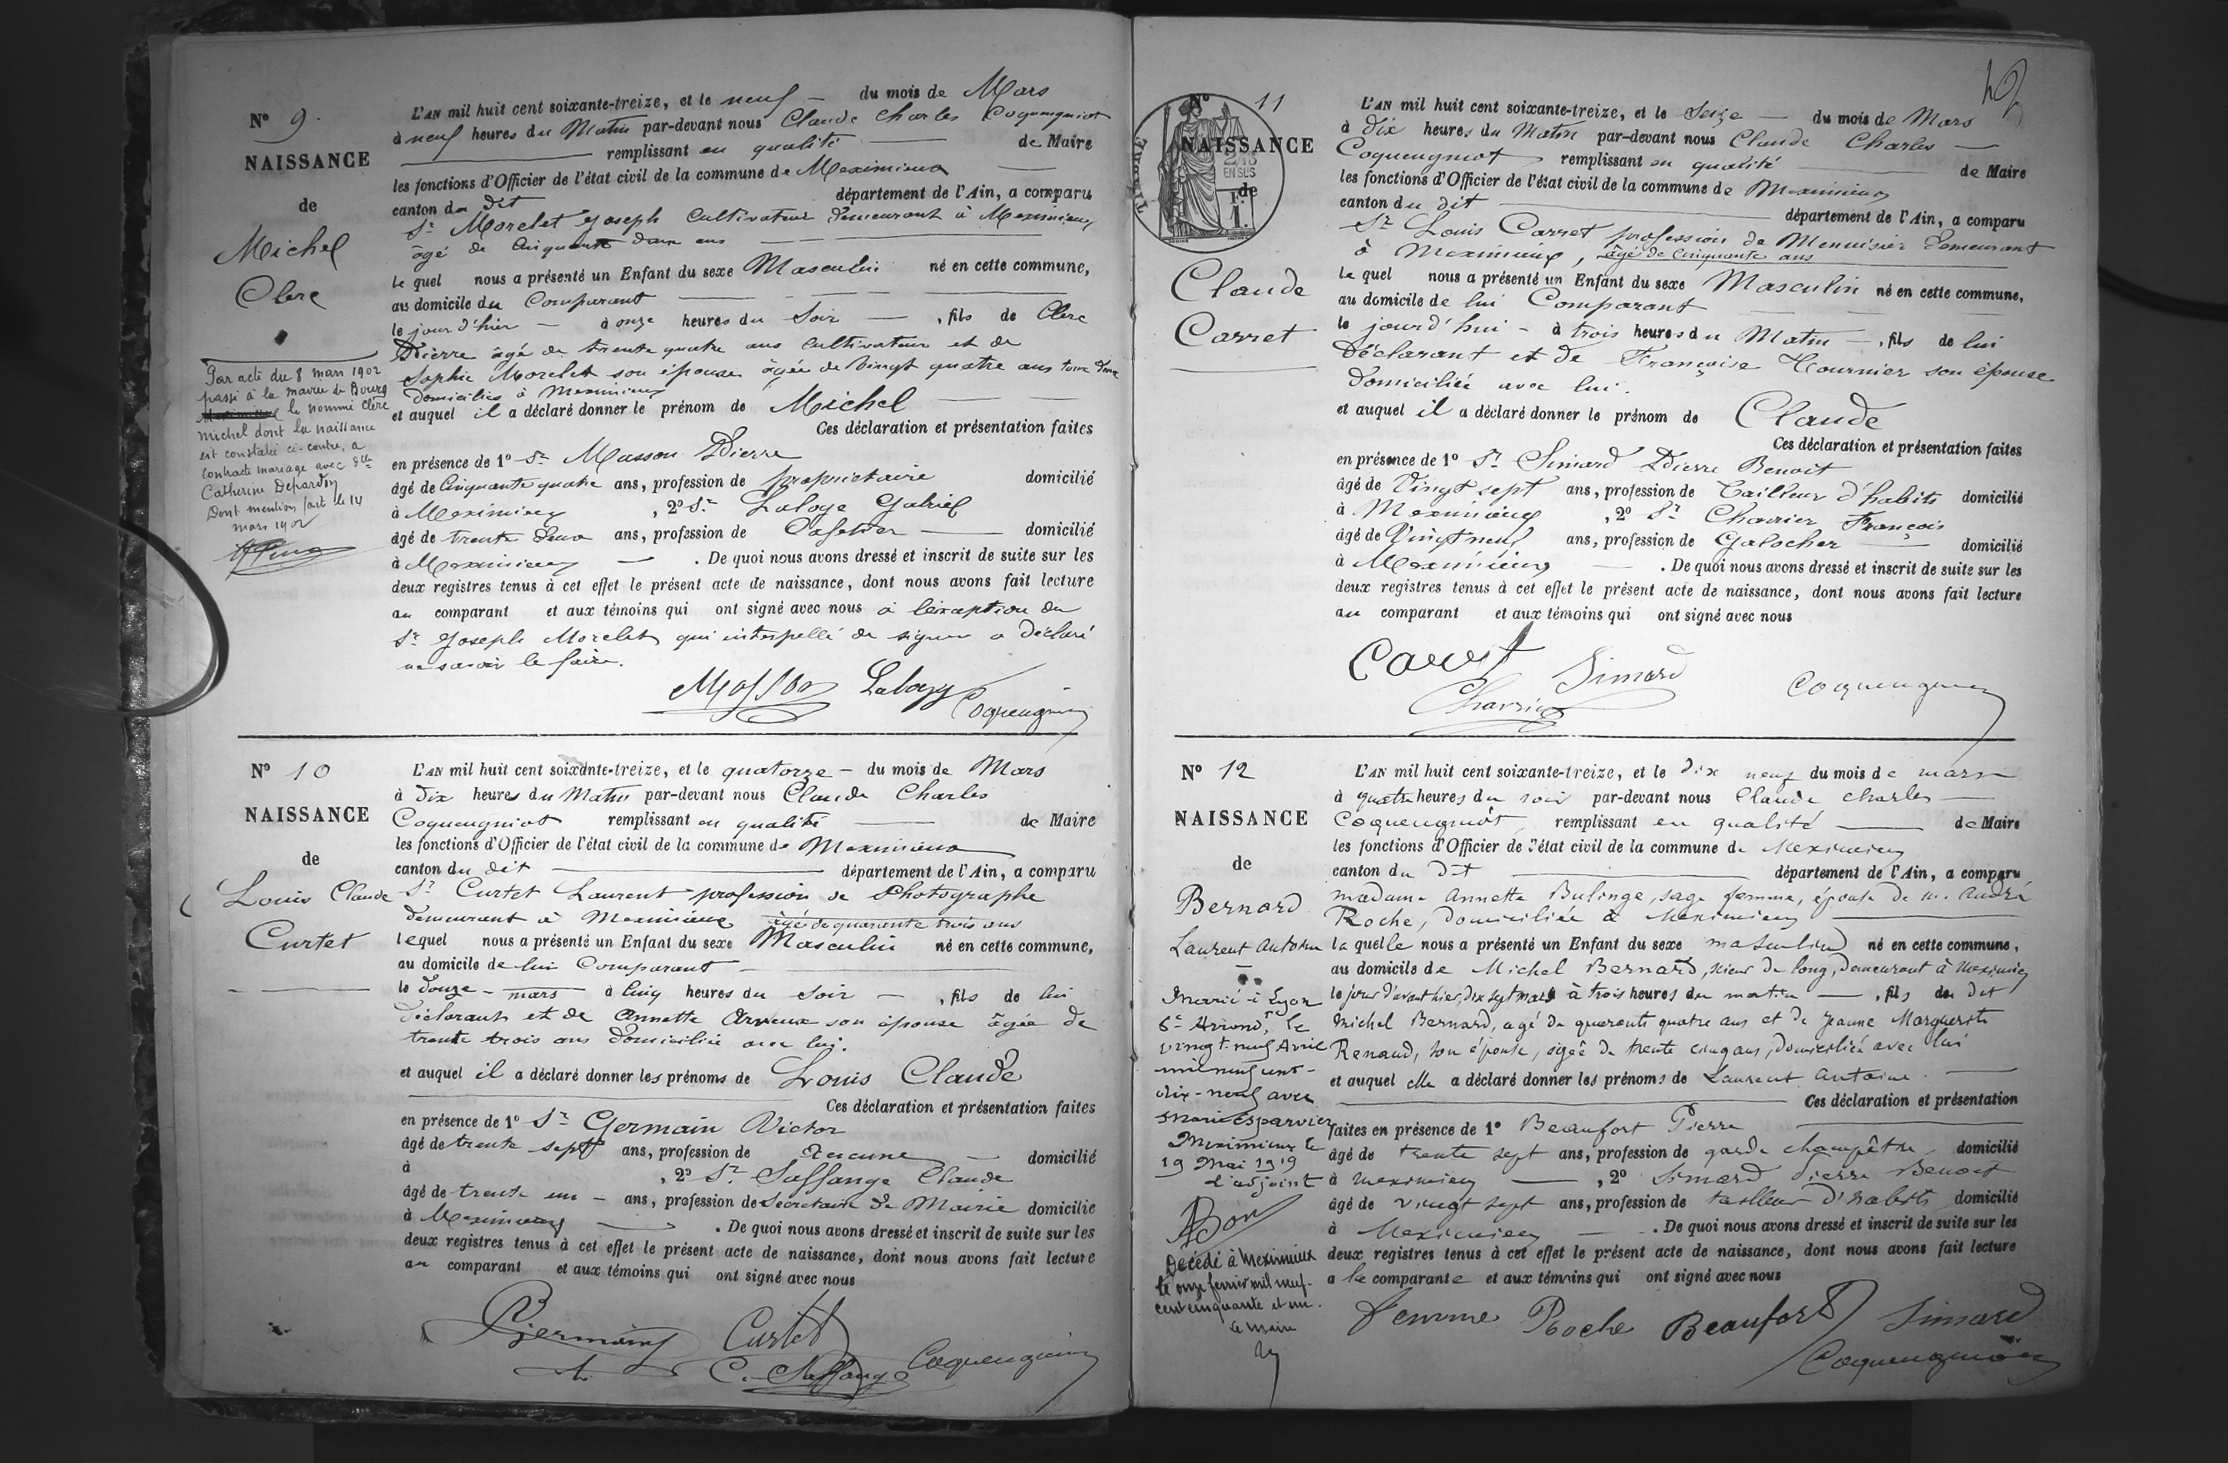 Nº 9.
NAISSANCE
de
Michel
Clerc
Par acte du 8 mars 1902
passé à la mairie de Bourg
le nommé Clerc
Michel dont la naissance
est constatée ci-contre, a
contracté mariage avec Dlle
Catherine Depardon
Dont mention fait le 14
mars 1902
L'AN mil huit cent soixante-treize, et le neuf — du mois de Mars
à neuf heures du Matin par-devant nous Claude Charles Coquengniot
remplissant en qualité — de Maire
les fonctions d'Officier de l'état civil de la commune de Meximieux
canton du dit département de l'Ain, a comparu
Sr Morelet Joseph Cultivateur demeurant à Meximieux
âgé de Cinquante deux ans
le quel nous a présenté un Enfant du sexe Masculin né en cette commune,
au domicile du Comparant
le jour d'hier — à onze heures du Soir — , fils de Clerc
Pierre âgé de trente quatre ans cultivateur et de
Sophie Morelet son épouse âgée de Vingt quatre ans tous deux
domiciliés à Meximieux
et auquel il a déclaré donner le prénom de Michel
Ces déclaration et présentation faites
en présence de 1º Sr Masson Pierre
âgé de Cinquante quatre ans, profession de propriétaire domicilié
à Meximieux , 2º Sr Laloge Gabriel
âgé de trente deux ans, profession de Cafetier — domicilié
à Meximieux — . De quoi nous avons dressé et inscrit de suite sur les
deux registres tenus à cet effet le présent acte de naissance, dont nous avons fait lecture
au comparant et aux témoins qui ont signé avec nous à l'exception du
Sr Joseph Morelet qui interpellé de signer a déclaré
ne savoir le faire.
Masson Laloge Coquengniot
Nº 10
NAISSANCE
de
Louis Claude
Curtet
L'AN mil huit cent soixante-treize, et le quatorze — du mois de Mars
à dix heures du Matin par-devant nous Claude Charles
Coquengniot remplissant en qualité — de Maire
les fonctions d'Officier de l'état civil de la commune de Meximieux
canton du dit département de l'Ain, a comparu
Sr Curtet Laurent profession de Photographe
demeurant à Meximieux âgé de quarante trois ans
lequel nous a présenté un Enfant du sexe Masculin né en cette commune,
au domicile de lui Comparant —
le douze — mars à cinq heures du Soir — , fils de lui
déclarant et de Annette son épouse âgée de
trente trois ans domiciliée avec lui.
et auquel il a déclaré donner les prénoms de Louis Claude
Ces déclaration et présentation faites
en présence de 1º Sr Germain Victor
âgé de trente sept ans, profession de Aucune — domicilié
à , 2º Sr Saffange Claude
âgé de trente un — ans, profession de Secrétaire de Mairie domicilié
à Meximieux — . De quoi nous avons dressé et inscrit de suite sur les
deux registres tenus à cet effet le présent acte de naissance, dont nous avons fait lecture
au comparant et aux témoins qui ont signé avec nous
Germain Curtet
C. Saffange Coquengniot
42
Nº 11
NAISSANCE
de
Claude
Carret
L'AN mil huit cent soixante-treize, et le Seize — du mois de Mars
à dix heures du Matin par-devant nous Claude Charles —
Coquengniot remplissant en qualité de Maire
les fonctions d'Officier de l'état civil de la commune de Meximieux
canton du dit département de l'Ain, a comparu
Sr Louis Carret profession de Menuisier demeurant
à Meximieux, âgé de Cinquante ans
le quel nous a présenté un Enfant du sexe Masculin né en cette commune,
au domicile de lui Comparant
le jourd'hui — à trois heures du Matin — , fils de lui
déclarant et de Françoise Tournier son épouse
domiciliée avec lui.
et auquel il a déclaré donner le prénom de Claude
Ces déclaration et présentation faites
en présence de 1º Sr Simard Pierre Benoit
âgé de Vingt sept ans, profession de Tailleur d'habits domicilié
à Meximieux , 2º Sr Charrier François
âgé de Vingt neuf ans, profession de Galocher — domicilié
à Meximieux — . De quoi nous avons dressé et inscrit de suite sur les
deux registres tenus à cet effet le présent acte de naissance, dont nous avons fait lecture
au comparant et aux témoins qui ont signé avec nous
Carret Simard
Charrier Coquengniot
Nº 12
NAISSANCE
de
Bernard
Laurent Antoine
Marié à Lyon
6e Arrondt, le
vingt-neuf Avril
mil neuf cent-
dix-neuf avec
Marie Esparvier
Meximieux le
19 Mai 1919
l'adjoint
Décédé à Meximieux
le onze février mil neuf-
cent cinquante et un.
Le maire
L'AN mil huit cent soixante-treize, et le dix neuf du mois de mars
à quatre heures du soir par-devant nous Claude Charles —
Coquengniot remplissant en qualité — de Maire
les fonctions d'Officier de l'état civil de la commune de Meximieux
canton du dit département de l'Ain, a comparu
madame Annette Bulinge, sage femme, épouse de m. André
Roche, domiciliée à Meximieux
la quelle nous a présenté un Enfant du sexe masculin né en cette commune,
au domicile de Michel Bernard, scieur de long, demeurant à Meximieux
le jour d'avant hier, dix sept mars à trois heures du matin — , fils du dit
Michel Bernard, agé de quarante quatre ans et de Jeanne Marguerite
Renaud, son épouse, agée de trente cinq ans, domiciliée avec lui
et auquel elle a déclaré donner les prénoms de Laurent Antoine —
Ces déclaration et présentation
faites en présence de 1º Beaufort Pierre
âgé de trente sept ans, profession de garde champêtre domicilié
à Meximieux — , 2º Simard Pierre Benoit
âgé de vingt sept ans, profession de tailleur d'habits domicilié
à Meximieux — . De quoi nous avons dressé et inscrit de suite sur les
deux registres tenus à cet effet le présent acte de naissance, dont nous avons fait lecture
a la comparante et aux témoins qui ont signé avec nous
Femme Roche Beaufort Simard
Coquengniot